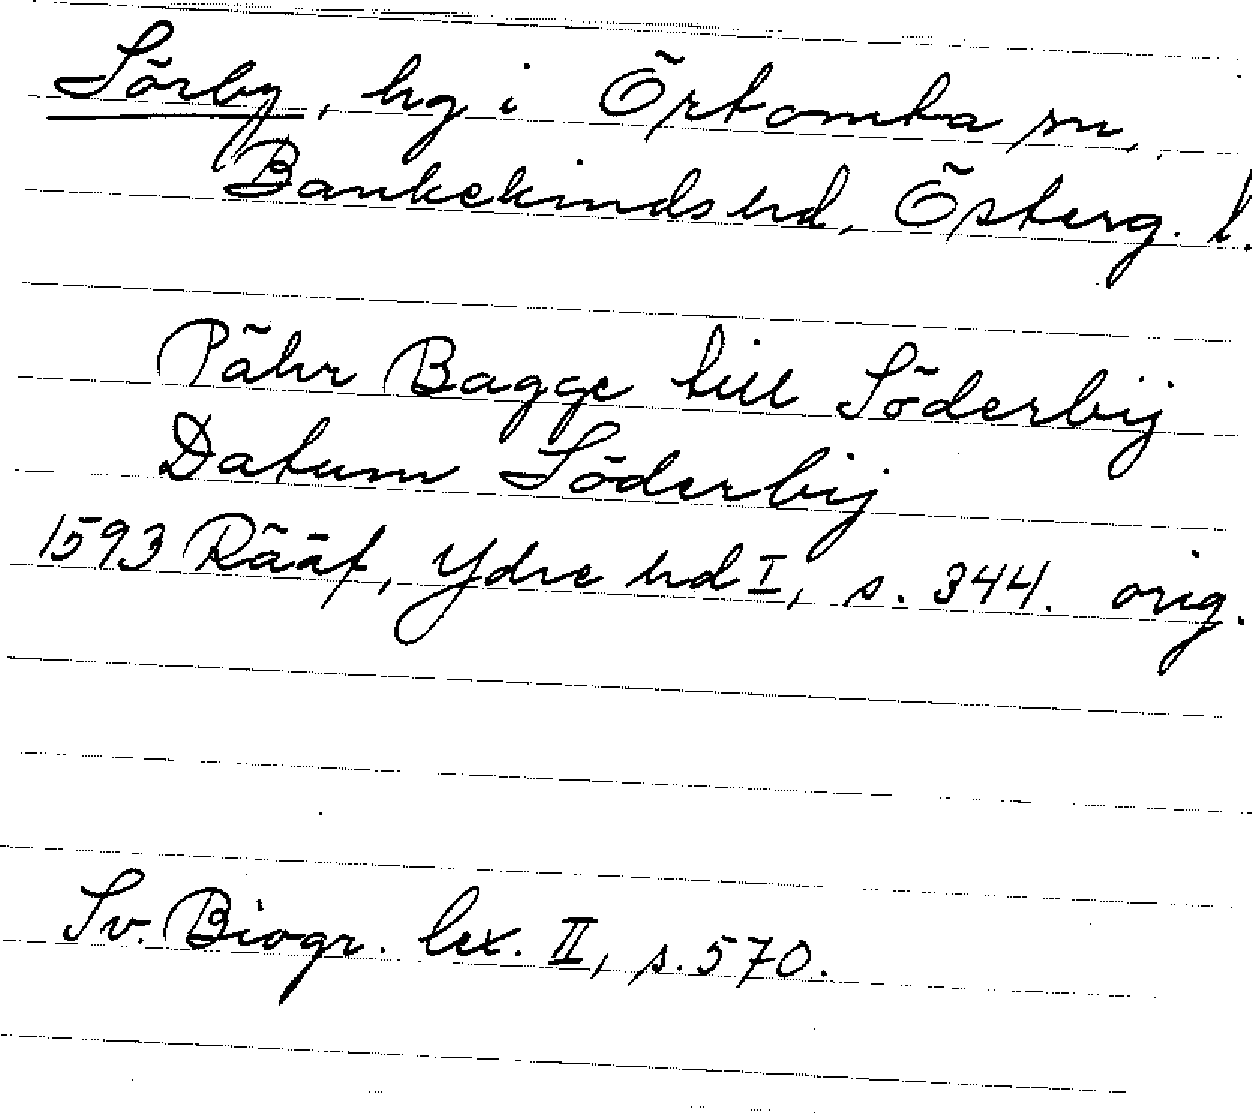 Sörby, hg i Örtomta sn,
Bankekinds hd, Österg. l.
Pähr Bagge till Söderbÿ
Datum Söderbÿ
1593 Rääf, Ydre hd I, s. 344. orig.
Sv. Biogr. lex. II, s. 570.